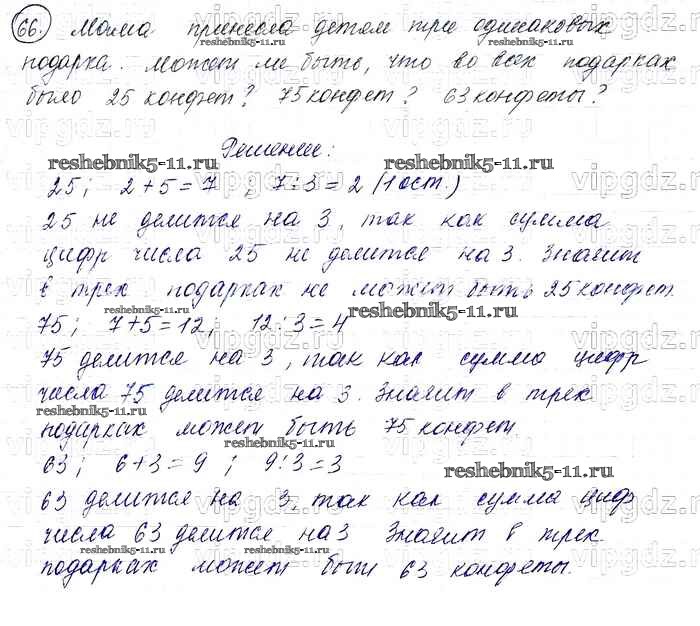 66. Мама принесла детям три одинаковых
подарка. Может ли быть, что во всех подарках
было 25 конфет? 75 конфет? 63 конфеты?
Решение:
reshebnik5-11.ru reshebnik5-11.ru
25; 2+5=7; 7:3=2 (1 ост.)
25 не делится на 3, так как сумма
цифр числа 25 не делится на 3. Значит
в трех подарках не может быть 25 конфет.
reshebnik5-11.ru
75; 7+5=12; 12:3=4
75 делится на 3, так как сумма цифр
числа 75 делится на 3. Значит в трех
reshebnik5-11.ru
подарках может быть 75 конфет.
reshebnik5-11.ru
63; 6+3=9; 9:3=3
reshebnik5-11.ru
63 делится на 3, так как сумма цифр
числа 63 делится на 3 Значит в трех
reshebnik5-11.ru reshebnik5-11.ru
подарках может быть 63 конфеты.
vipgdz.ru